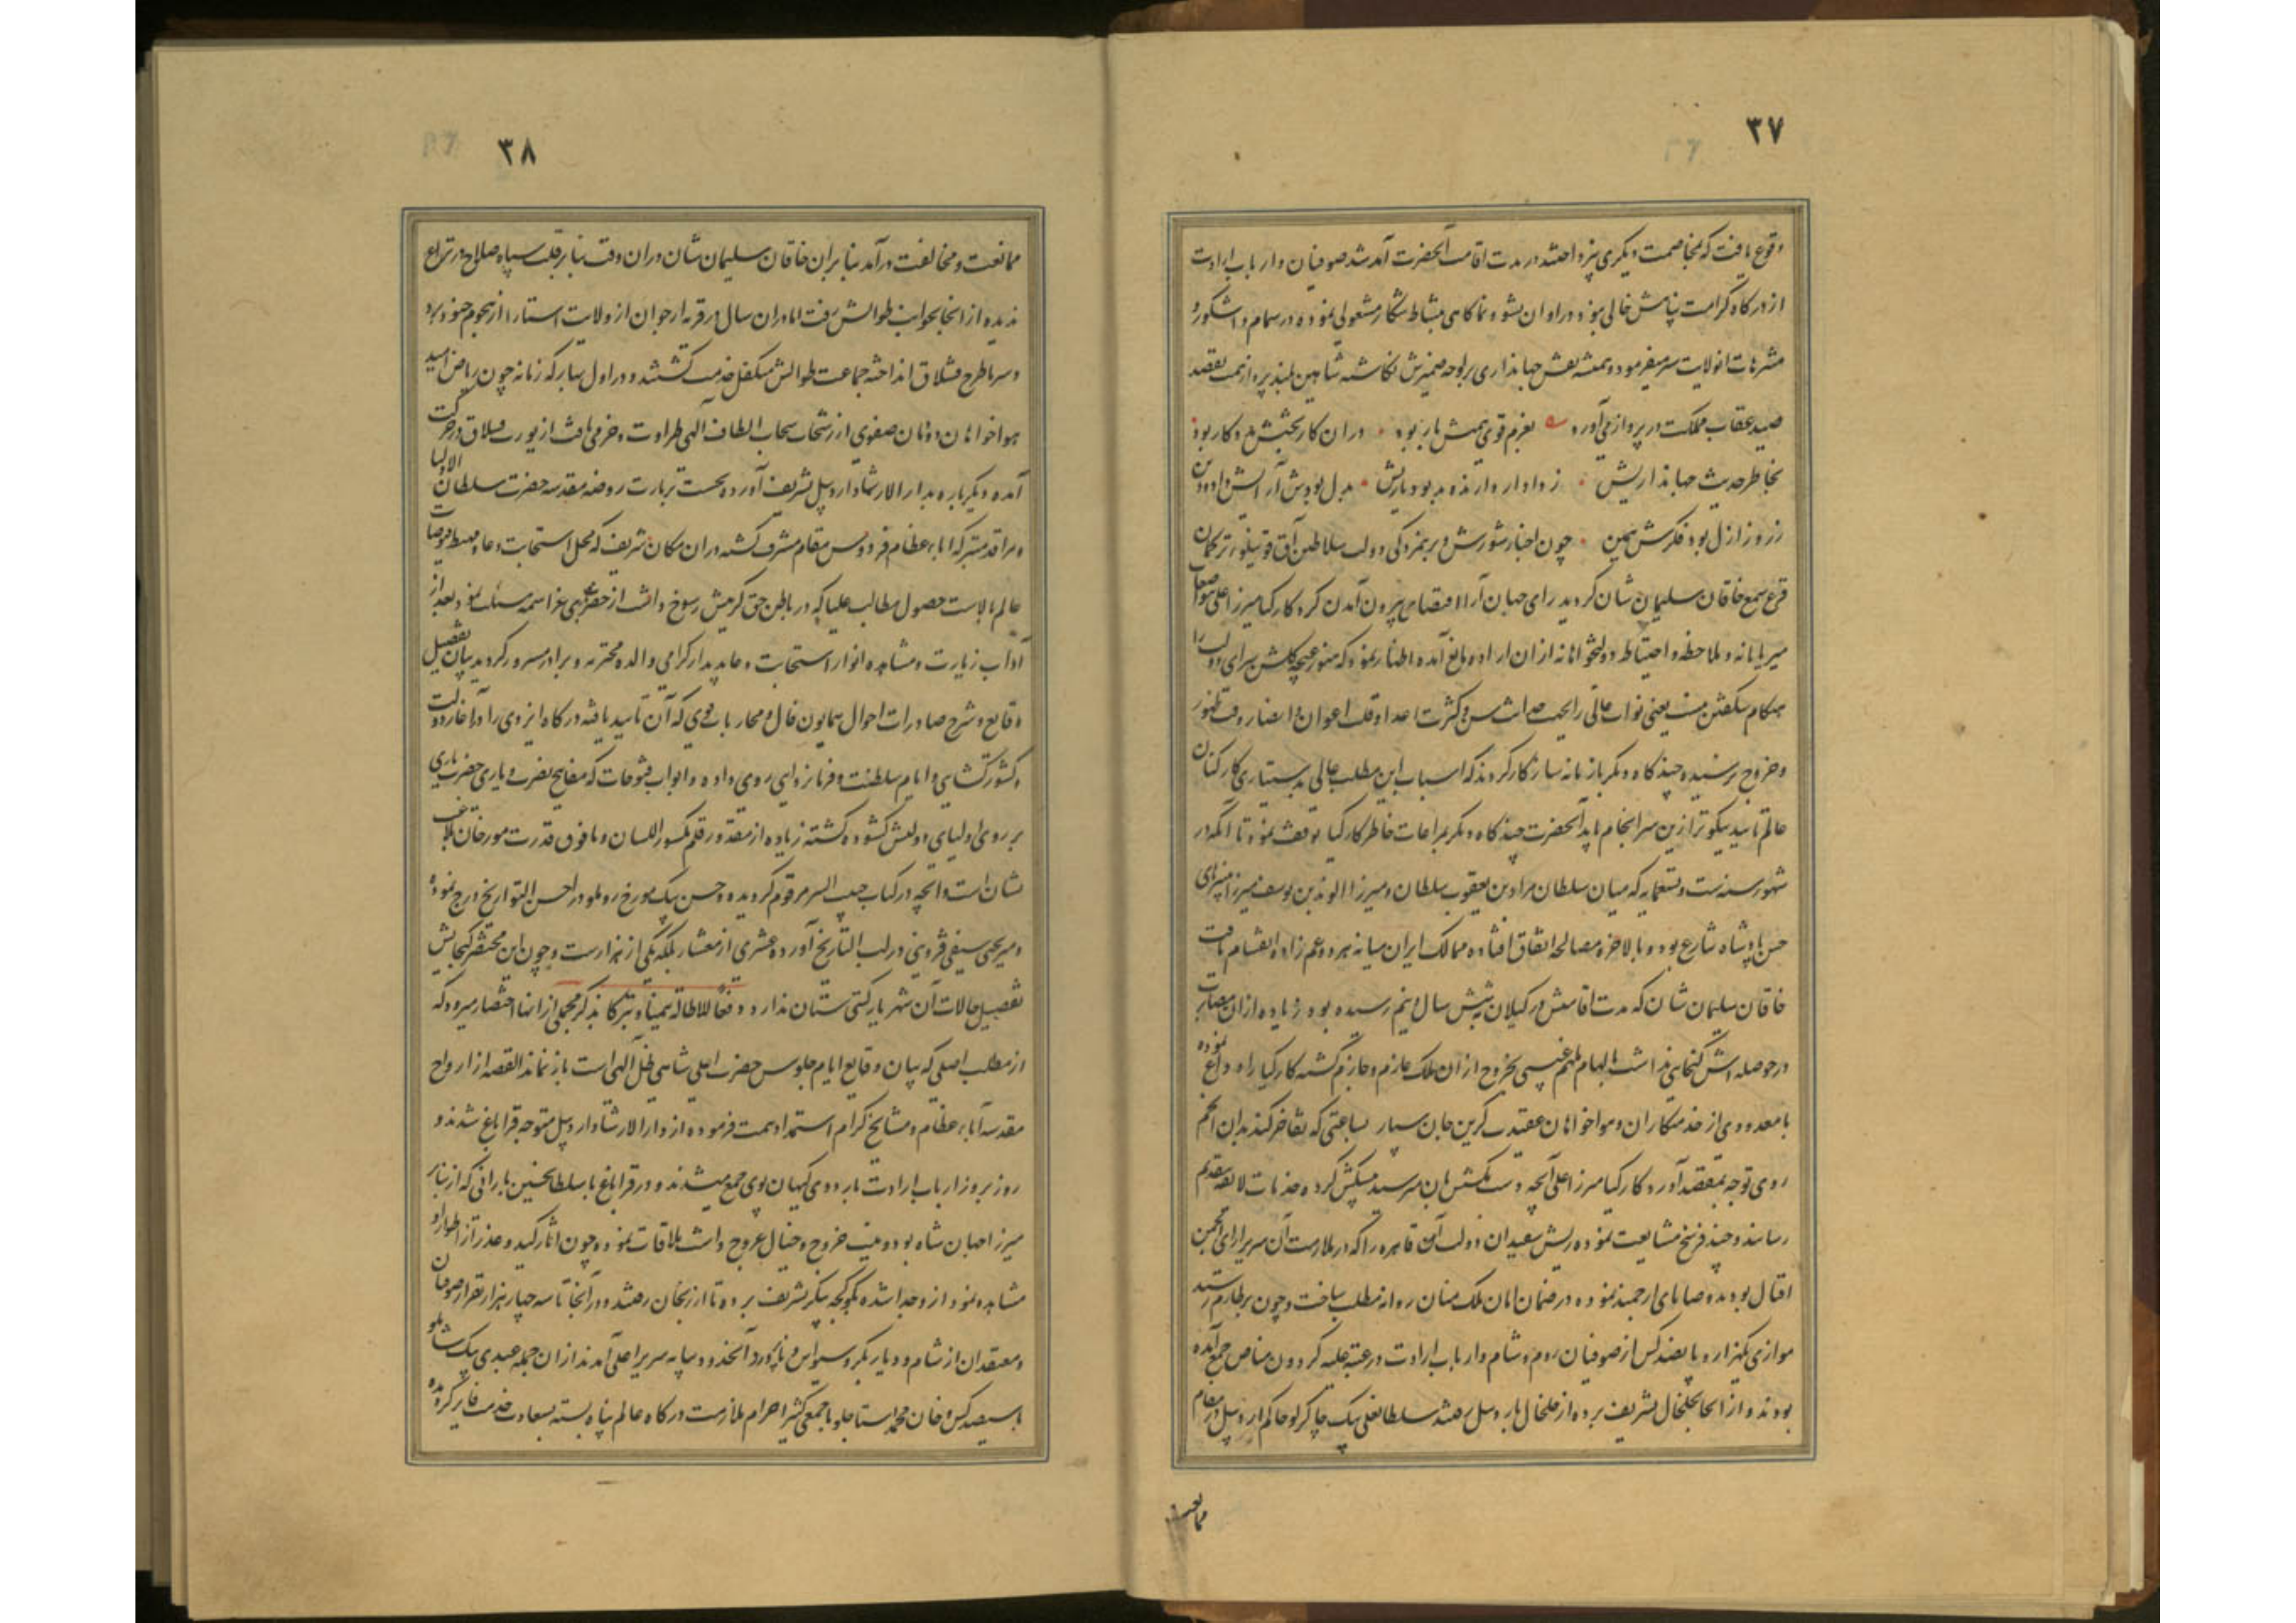 ۳۷
وقوع یافت که بمخاصمت دیگری نپرداختند در مدت اقامت آنحضرت آمد شد صوفیان و ارباب ارادت
از درگاه کرامت پناهش خالی نبود و در اوان نشو و نما گاهی بنشاط شکار مشغولی نموده در سمام و اشکور و
متنزهات انولایت سیر میفرمود و همیشه نقش جهانداری بر لوحه ضمیرش نگاشته شاهین بلند پرواز همت بقصد
صید عقاب مملکت در پرواز می آورد بعزم قوی همتش یار بود در ان کار بختش مددکار بود
بخاطر حدیث جهانداریش ز دادار دارنده بد یاریش بدل بودش آرایش داد و دین
ز روز ازل بود فکرش همین چون اخبار شورش و بر همزدگی دولت سلاطین آق قوینلو ترکمان
قرع سمع خاقان سلیمان شان گردید رای جهان آرا اقتضای بیرون آمدن کرد کارکیا میرزا علی
میزبانانه و ملاحظه و احتیاط دولتخواهانه از ان اراده مانع آمده اظهار نمود که هنوز غنچه گلشن سرای دولت را
هنگام شکفتن نیست یعنی نواب عالی را حداثت سن و کثرت اعدا و قلت اعوان و انصار وقت ظهور
و خروج نرسیده چند گاه دیگر با زمانه سازگار گردند که اسباب این مطلب عالی بدستیاری کارکنان
عالم تایید نیکوتر ازین سرانجام یابد آنحضرت چند گاه دیگر بمراعات خاطر کارکیا توقف نموده تا آنکه در
شهور سنه ست و تسعمایه که میان سلطان مراد بن یعقوب سلطان و میرزا الوند بن یوسف میرزا نبیرهای
حسن پادشاه تنازع بود و بالاخره مصالحه اتفاق افتاده ممالک ایران میانه هر دو عم زاده انقسام یافت
خاقان سلیمان شان که مدت اقامتش در گیلان بشش سال و نیم رسیده بود زیاده از ان مصابرت
در حوصله اش گنجایی نداشت بالهام ملهم غیبی بخروج از ان ملک عازم و جازم گشته کارکیا را وداع نموده
با معدودی از خدمتکاران و هواخواهان عقیدت گزین جان سپار بساعتی که تفاخر کند بدان انجم
روی توجه بمقصد آورد کارکیا میرزا علی آنچه دست مکنتش بان میرسید پیشکش کرده خدمات لایقه بتقدیم
رسانید و چند فرسخ مشایعت نموده ریش سفیدان دولت این قاهره را که در ملازمت آن سریر آرای انجمن
اقبال بودند وصایای ارجمند نموده در ضمان امان ملک منان روانه مطلب ساخت و چون بطارم رسید
موازی یکهزار و پانصد کس از صوفیان روم و شام و ارباب ارادت در عتبه علیه گردون مناص جمع آمده
بودند و از انجا بخلخال تشریف برده از خلخال باردبیل رفتند سلطانعلی بیک چاکرلو حاکم اردبیل در مقام
ممانعت
۳۸
ممانعت و مخالفت درآمد بنابران خاقان سلیمان شان در ان وقت بنا بر قلت سپاه صلاح در نزاع
ندیده از انجا بجوانب طوالش رفت اما دران سال در قریه ارجوان از ولایت استارا از هجوم جنود برد
و سرما طرح قشلاق انداخته جماعت طوالش متکفل خدمت گشتند و در اول بهار که زمانه چون ریاض امید
هواخواهان دودمان صفوی از رشحات سحاب الطاف آلهی طراوت و خرمی یافت از یورت قشلاق در حرکت
آمده دیگرباره بدار الارشاد اردبیل تشریف آورده نخست زیارت روضه مقدسه حضرت سلطان الاولیا
و مراقد متبرکه اباء عظام فردوس مقام مشرف گشته در ان مکان شریف که محل استجابت دعا و مهبط فیوضات
عالم بالاست حصول مطالب علیا که در باطن حق گزینش رسوخ داشت از حضرت الهی عز اسمه مسئلت نمود بعد از
آداب زیارت و مشاهده انوار استجابت دعا بدیدار گرامی والده محترمه و برادر مسرور گردید بیان تفصیل
وقایع و شرح صادرات احوال همایون فال و محارباتی قوی که آن تایید یافته درگاه ایزدی را در آغاز دولت
و کشورگشایی و ایام سلطنت و فرمانروایی روی داده و ابواب فتوحات که مفاتیح نصرت و یاری حضرت باری
بر روی اولیای دولتش گشوده گشته زیاده از مقدور قلم مکسور اللسان و ما فوق قدرت مورخان بلاغت
نشان است و آنچه در کتاب حبیب السیر مرقوم گردیده و حسن بیک مورخ روملو در احسن التواریخ درج نموده
و میر یحیی سیفی قزوینی در لب التاریخ آورده عشری از معشار بلکه یکی از هزارست و چون این مختصر گنجایش
تفصیل حالات آن شهریار گیتی ستان ندارد و دفعا للاطاله تیمنا و تبرکا بذکر مجملی از انها اختصار میرود که
از مطلب اصلی که بیان وقایع ایام جلوس حضرت اعلی شاهی ظل آلهی است باز نماند القصه از ارواح
مقدسه آباء عظام و مشایخ کرام استمداد همت فرموده از دار الارشاد اردبیل متوجه قراباغ شدند و
روز بروز ارباب ارادت باردوی کیهان پوی جمع میشدند و در قراباغ با سلطان حسین بارانی که از نبایر
میرزا جهان شاه بود و نیت خروج و خیال عروج داشت ملاقات نمود و چون آثار کید و غدر از اطوار او
مشاهده نمود از و جدا شده بکوکجه نکیز تشریف برده تا ارزنجان رفتند و در آنجا تا سه چهار هزار نفر از صوفیان
و معتقدان از شام و دیار بکر و سیواس و بایبورد آنحدود بپایه سریر اعلی آمدند از ان جمله عبدی بیک شاملو
با سیصد کس و خان محمد استاجلو با جمعی کثیر احرام ملازمت درگاه عالم پناه بسته بسعادت خدمت فایز گردیده